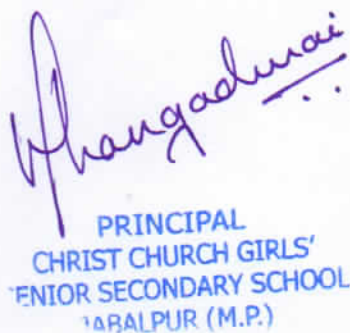 PRINCIPAL
CHRIST CHURCH GIRLS'
ENIOR SECONDARY SCHOOL
ABALPUR (M.P.)